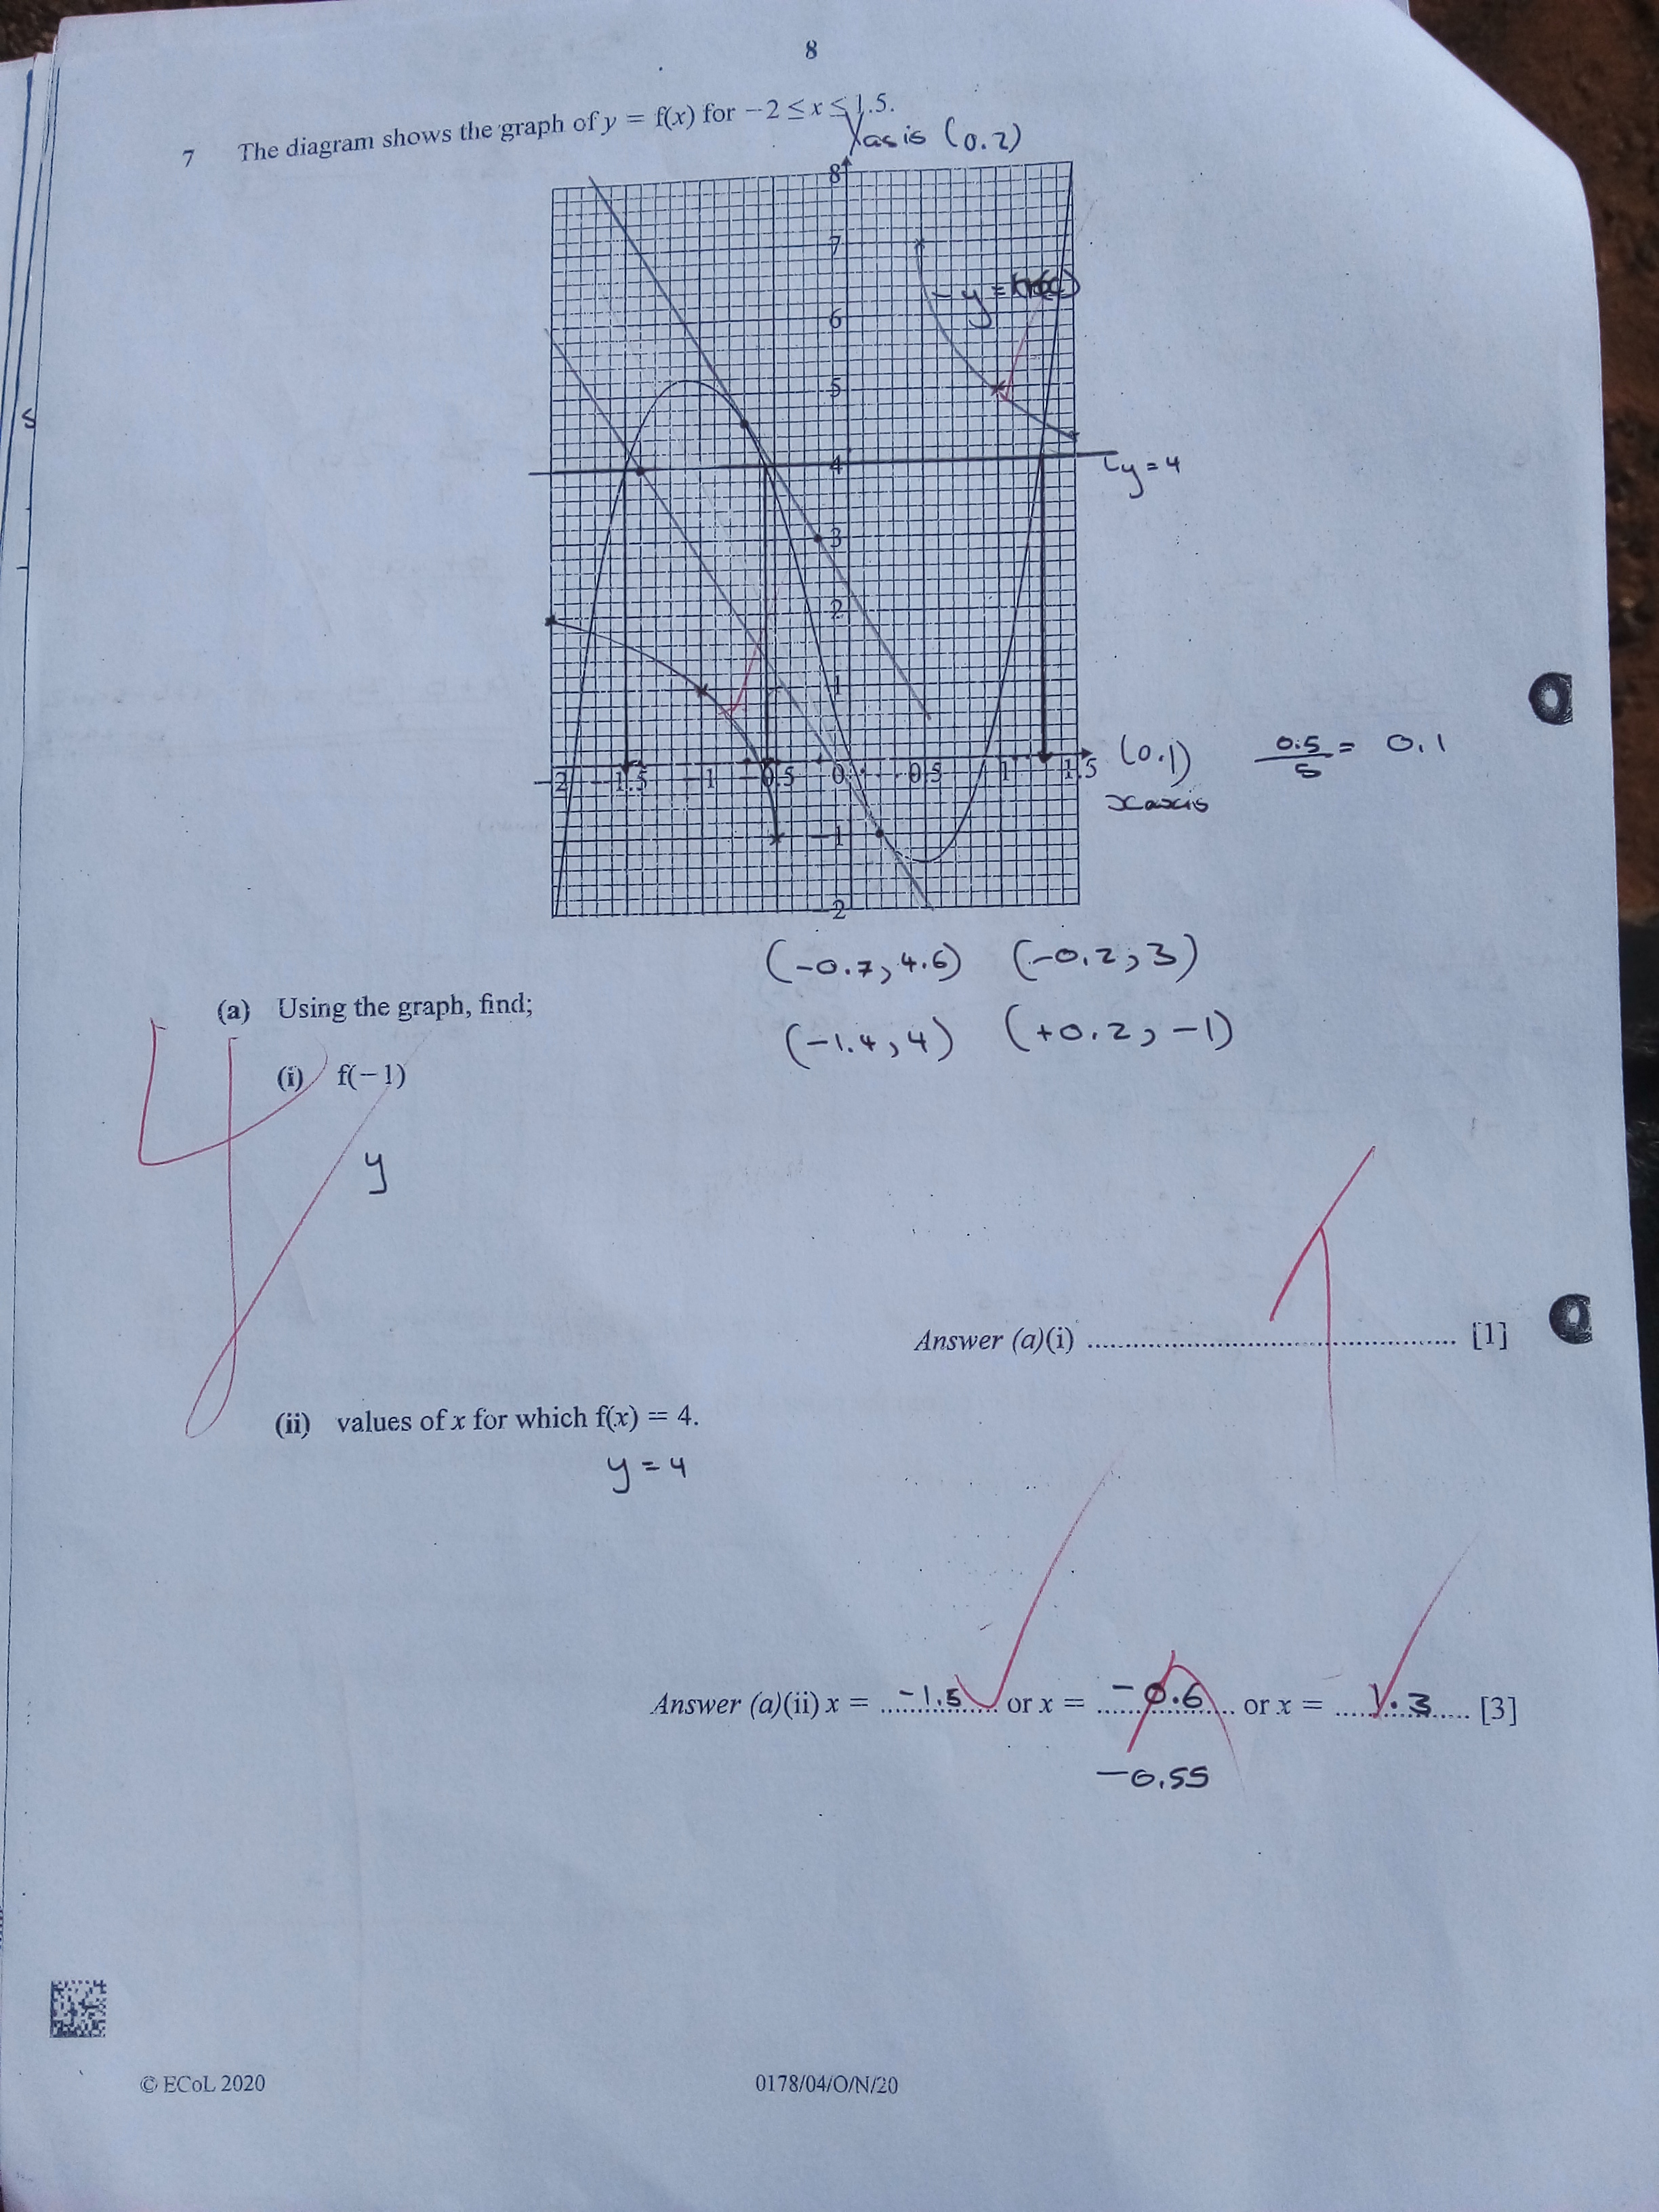 8
7 The diagram shows the graph of y = f(x) for −2 ≤ x ≤ 1.5.
Yasis (0.2)
8
7
6
5
4
3
2
1
−1
−2
−2 −1.5 −1 −0.5 0 0.5 1 1.5
y = 4
(0.1)
xaxis
0.5/5 = 0.1
(-0.7, 4.6) (-0.2, 3)
(-1.4, 4) (+0.2, -1)
(a) Using the graph, find;
(i) f(−1)
y
Answer (a)(i) ........................................ [1]
(ii) values of x for which f(x) = 4.
y = 4
Answer (a)(ii) x = -1.5 or x = -0.6 or x = 1.3 [3]
-0.55
© ECoL 2020 0178/04/O/N/20